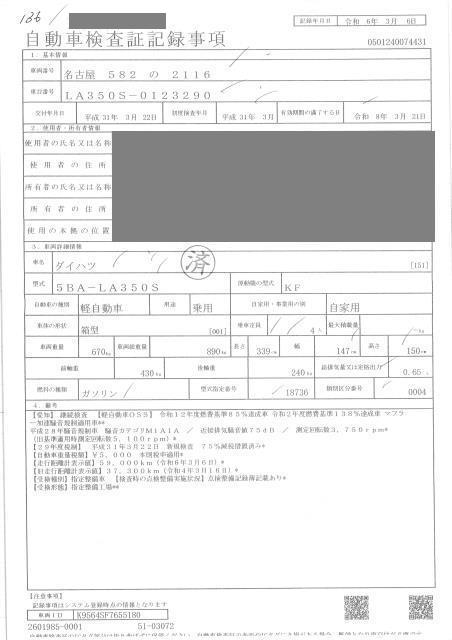 136
記録年月日 令和 6年 3月 6日
自動車検査証記録事項
0501240074431
1. 基本情報
車両番号 名古屋 582 の 2116
車台番号 LA350S-0123290
交付年月日 平成 31年 3月 22日 初度検査年月 平成 31年 3月 有効期間の満了する日 令和 8年 3月 21日
2. 使用者・所有者情報
使用者の氏名又は名称
使用者の住所
所有者の氏名又は名称
所有者の住所
使用の本拠の位置
3. 車両詳細情報
車名 ダイハツ [151]
済
型式 5BA-LA350S 原動機の型式 KF
自動車の種別 軽自動車 用途 乗用 自家用・事業用の別 自家用
車体の形状 箱型 [001] 乗車定員 4人 最大積載量 -kg
車両重量 670kg 車両総重量 890kg 長さ 339cm 幅 147cm 高さ 150cm
前軸重 430kg 後軸重 240kg 総排気量又は定格出力 0.65
燃料の種類 ガソリン 型式指定番号 18736 類別区分番号 0004
4. 備考
【愛知】 継続検査 【軽自動車OSS】 令和12年度燃費基準85%達成車 令和2年度燃費基準138%達成車 マフラ
ー加速騒音規制適用車**
平成28年騒音規制車 騒音カテゴリM1A1A / 近接排気騒音値75dB / 測定回転数3,750rpm*
(旧基準適用時測定回転数5,100rpm)*
【29年度税制】 平成31年3月22日 新規検査 75%減税措置済み*
【自動車重量税額】¥5,000 本則税率適用*
【走行距離計表示値】59,000km(令和6年3月6日)*
【旧走行距離計表示値】37,300km(令和4年3月16日)*
【受検種別】指定整備車 【検査時の点検整備実施状況】点検整備記録簿記載あり*
【受検形態】指定整備工場**
【注意事項】
記録事項はシステム登録時点の情報となります
車両ID K9564SF7655180
2601985-0001 51-03072